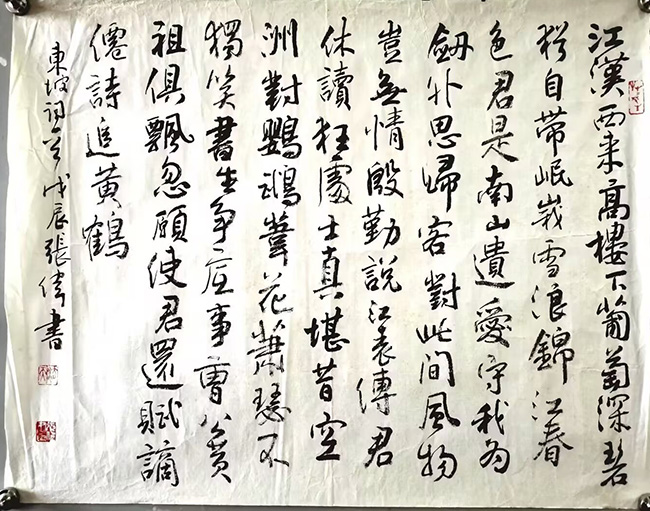 江漢西来高樓下葡萄深碧
猶自帶岷峩雪浪錦江春
色君是南山遺愛守我為
釼外思歸客對此間風物
豈無情殷勤說江表傳君
休讀狂處士真堪昔空
洲對鸚鵡葦花蕭瑟不
獨笑書生争底事曹公黄
祖俱飄忽願使君還賦謫
僊詩追黄鶴
東坡詞 戊辰張書